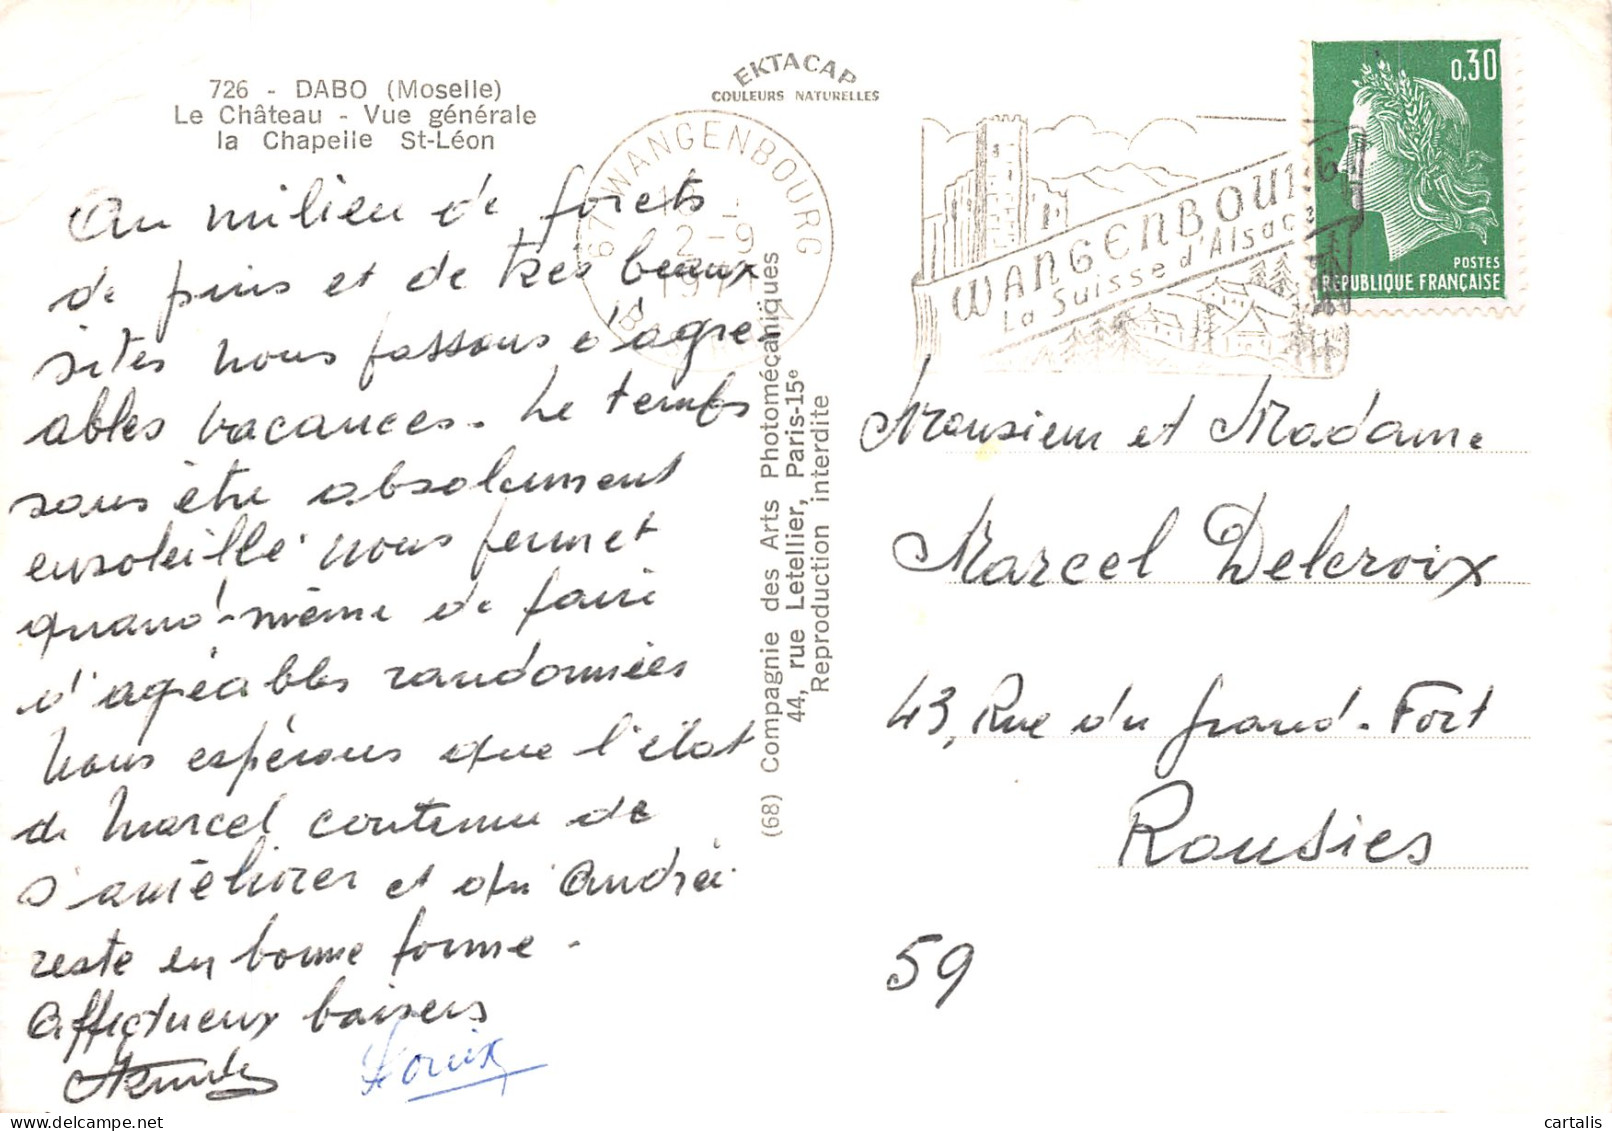 726 - DABO (Moselle)
Le Château - Vue générale
la Chapelle St-Léon
EKTACAP
COULEURS NATURELLES
67 WANGENBOURG
2-9
1971
WANGENBOURG
La Suisse d'Alsace
0,30
POSTES
REPUBLIQUE FRANÇAISE
Au milieu de forets
de pins et de très beaux
sites nous passons d'agré-
ables vacances. Le temps
sans être absolument
ensoleillé nous permet
quand-même de faire
d'agréables randonnées
Nous espérons que l'état
de Marcel continue de
s'améliorer et qu'Andrée
reste en bonne forme -
Affectueux baisers
Louix
(68) Compagnie des Arts Photomécaniques
44, rue Letellier, Paris-15e
Reproduction interdite
Monsieur et Madame
Marcel Delcroix
43, Rue du Grand-Fort
Rousies
59
cartalis